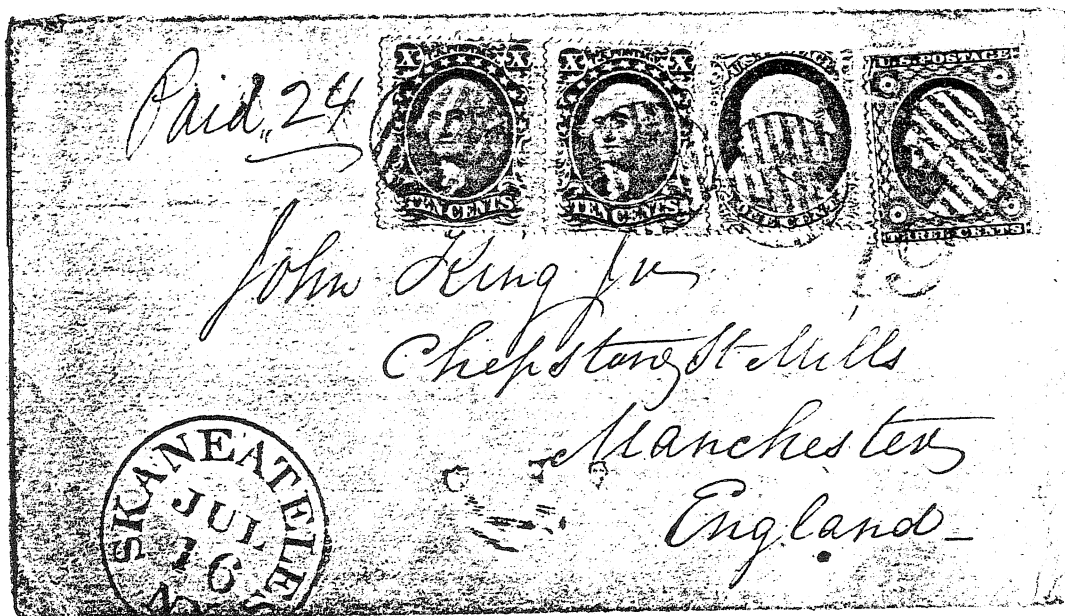 Paid, 24
X U.S. POSTAGE X
TEN CENTS
X X
TEN CENTS
U.S. POSTAGE
THREE CENTS
John King Jr
Chepstow St Mills
Manchester
England
SKANEATELES
JUL
16